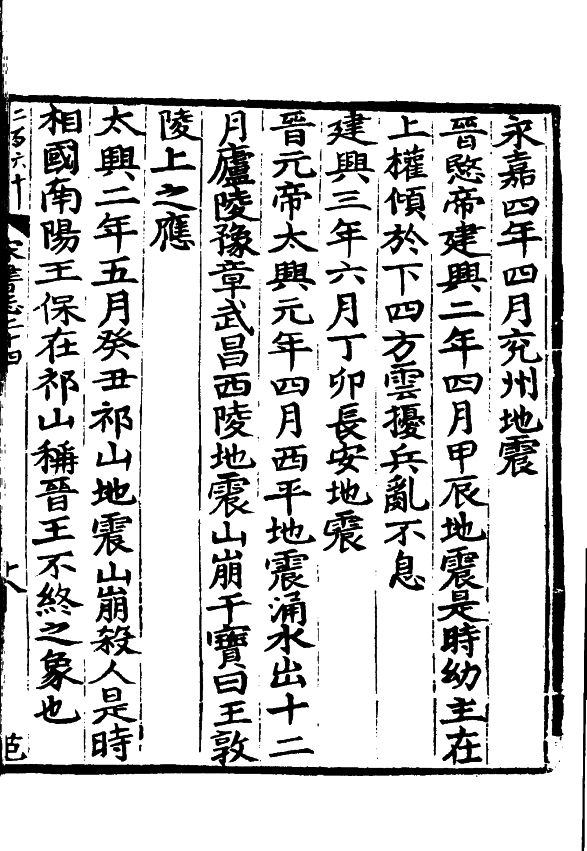 永嘉四年四月兖州地震
晉愍帝建興二年四月甲辰地震是時幼主在
上權傾於下四方雲擾兵亂不息
建興三年六月丁卯長安地震
晉元帝太興元年四月西平地震涌水出十二
月廬陵豫章武昌西陵地震山崩干寶曰王敦
陵上之應
太興二年五月癸丑祁山地震山崩殺人是時
相國南陽王保在祁山稱晉王不終之象也
二百六十
宋書志二十四